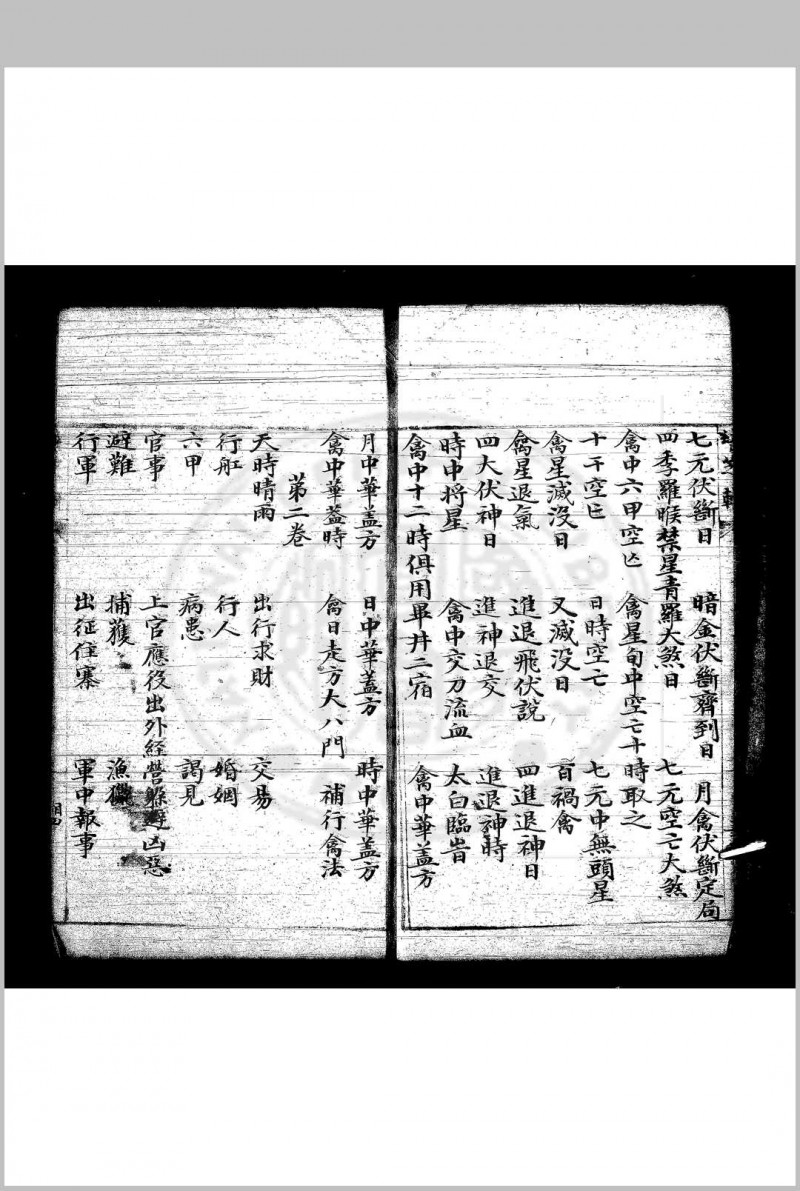 七元伏斷日　暗金伏斷齊到日　月禽伏斷定局
四季羅睺禁星青羅大煞日　七元空亡大煞
禽中六甲空亡　禽星旬中空亡十時取之
十干空亡　日時空亡　七元中無頭星
禽星滅没日　又滅没日　百禍禽
禽星退氣　進退飛伏説　四進退神日
四大伏神日　進神退交　進退神時
時中將星　禽中交刀流血　太白臨旹
禽中十二時俱用畢井二宿　禽中華盖方
月中華盖方　日中華盖方　時中華盖方
禽中華蓋時　禽日走方大八門　補行禽法
第二卷
天時晴雨　出行求財　交易
行舡　行人　婚姻
六甲　病患　謁見
官事　上官應役出外經營躲避凶惡
避難　捕獲　漁獵
行軍　出征住寨　軍中報事